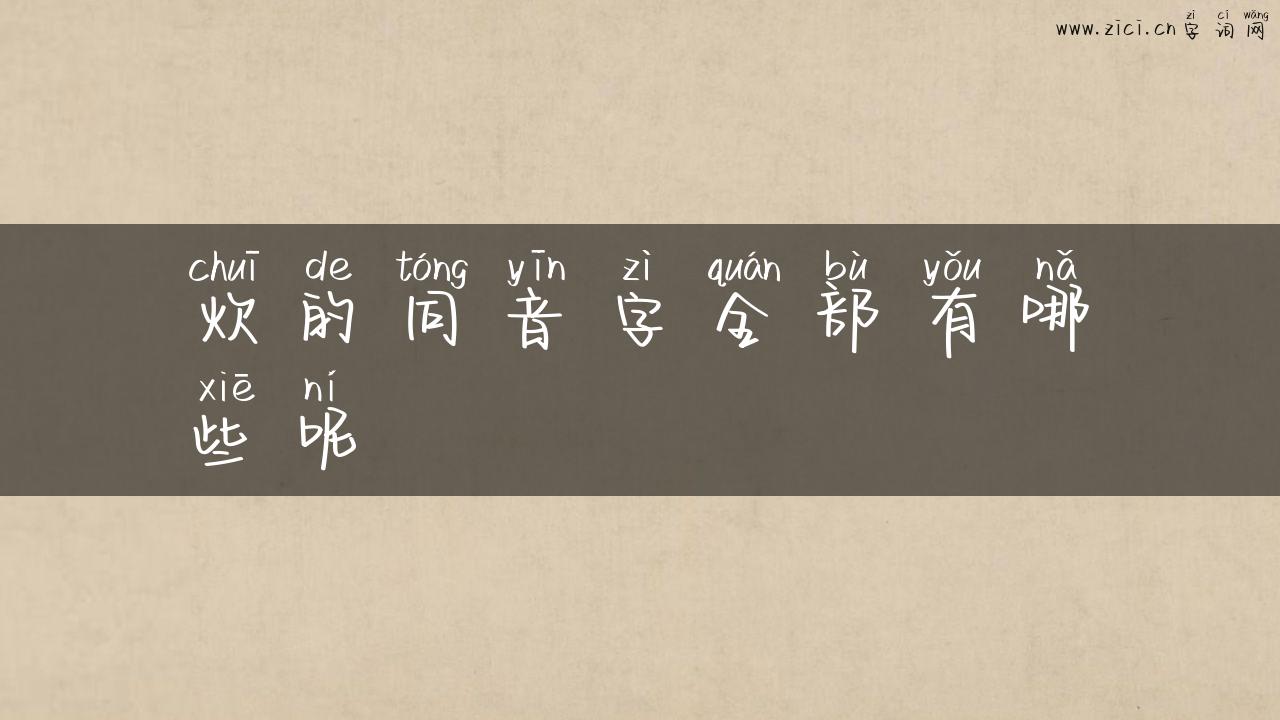 zì cí wǎng
www.zici.cn 字词网
chuī de tóng yīn zì quán bù yǒu nǎ
炊的同音字全部有哪
xiē ní
些呢